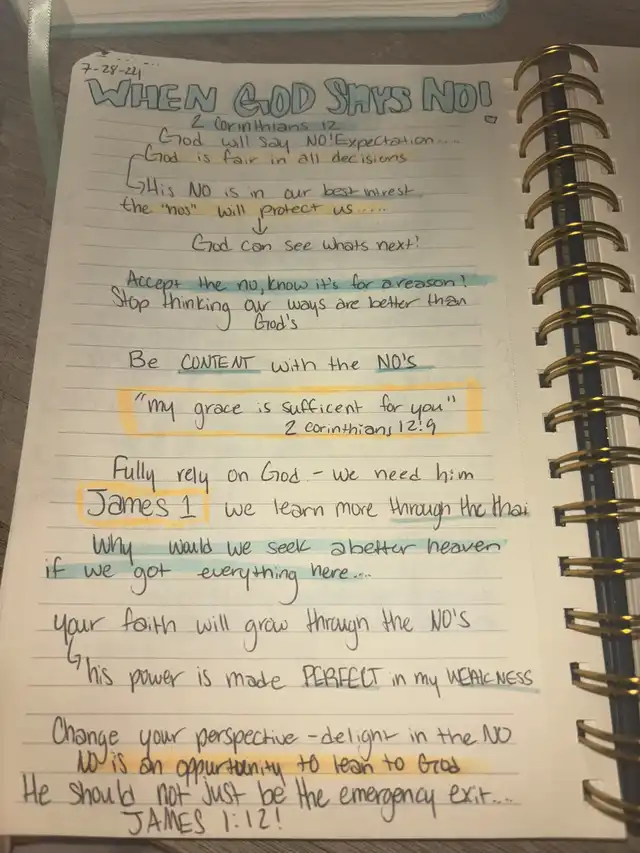 7-28-24
WHEN GOD SAYS NO!
2 Corinthians 12
God will say NO! Expectation....
God is fair in all decisions
His NO is in our best intrest
the "nos" will protect us.....
God can see whats next!
Accept the no, know it's for a reason!
Stop thinking our ways are better than
God's
Be CONTENT with the NO'S
"my grace is sufficent for you"
2 Corinthians 12:9
Fully rely on God - we need him
James 1 we learn more through the
Why would we seek a better heaven
if we got everything here....
your faith will grow through the NO'S
his power is made PERFECT in my WEAKNESS
Change your perspective - delight in the NO
NO is an oppurtunity to lean to God
He should not just be the emergency exit....
JAMES 1:12!